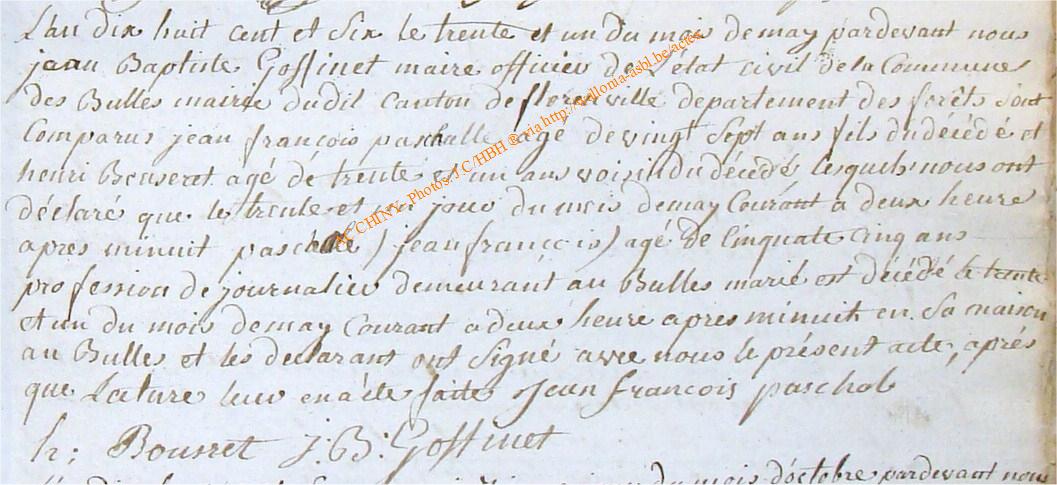 L'an dix huit cent et Six le trente et un du mois de may pardevant nous
jean Baptiste Goffinet maire officier de l'état civil de la Commune
des Bulles mairie dudil Canton de florenville departement des forêts Sont
Comparus jean françois paschalle agé de vingt Sept ans fils du décédé et
henri Bouseret agé de trente et un ans voisin du décédés lesquels nous ont
déclaré que le trente et un jour du mois de may Courant a deux heure
apres minuit paschalle ) jean francois ) agé de Cinquate Cinq ans
profession de journalier demeurant au Bulles marié est décédé le trente
et un du mois de may Courant a deux heure apres minuit en Sa maison
au Bulles et les declarant ont Signé avec nous le présent acte, après
que Lature leur en a été faite Jean francois paschal
h: Bousret J: B: Goffinet
du mois d'octobre pardevant nous
CHINY- Photos: J.C/HBH ® via http://wallonia-asbl.be/actes